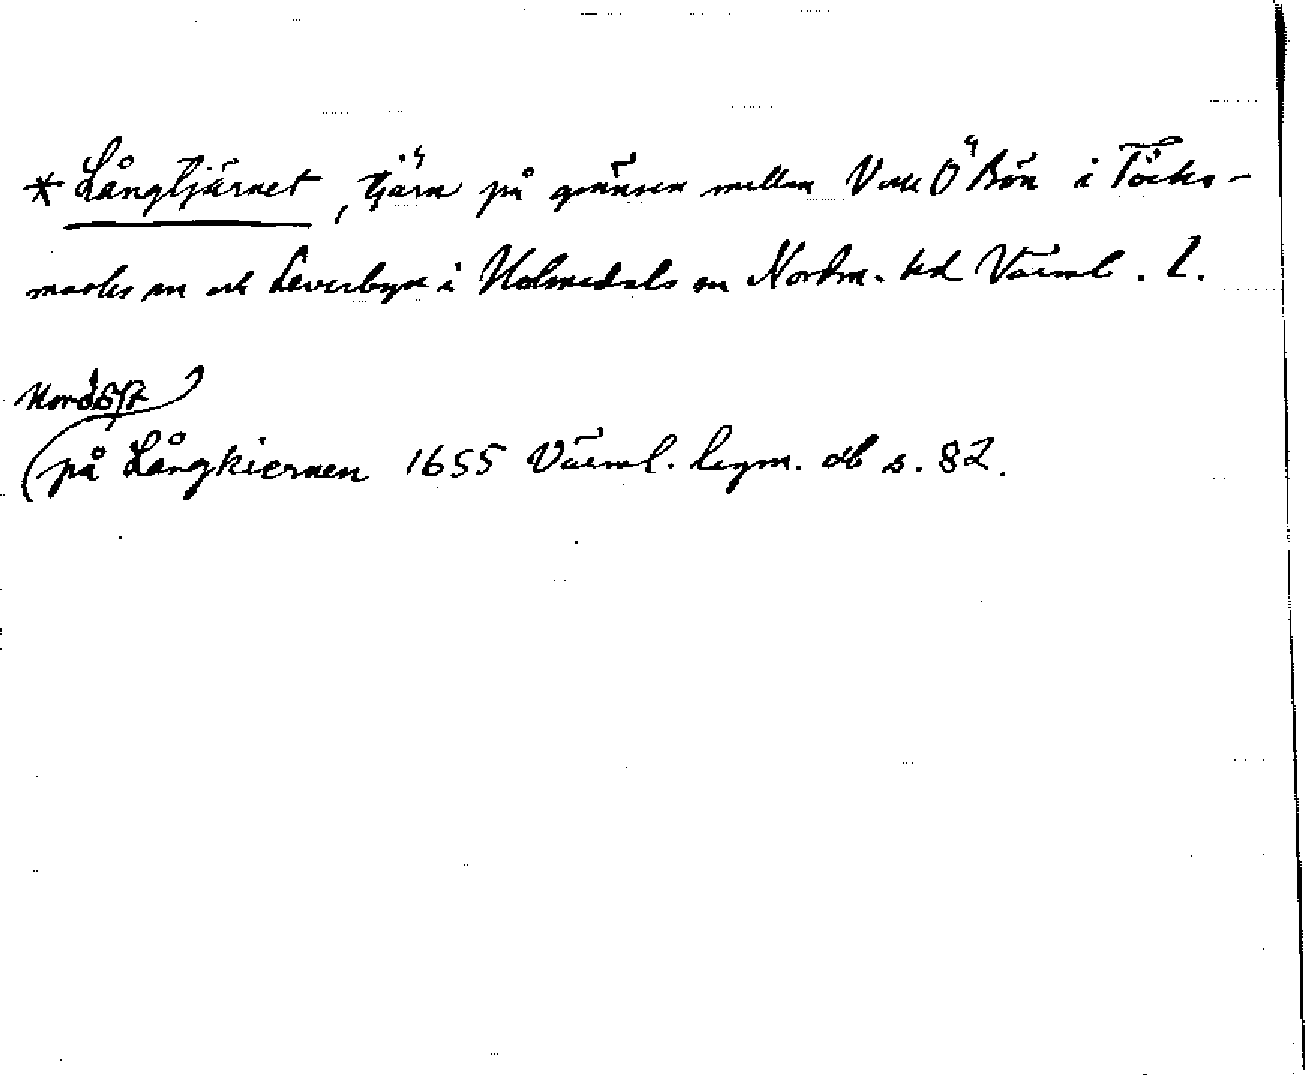 * Långtjärnet, tjärn på gränsen mellan V och Ö Bön i Töcks-
marks sn och Leverbyn i Holmedals sn Nordm. hd Värml. l.
på Långkiernen 1655 Värml. legm. db s. 82.